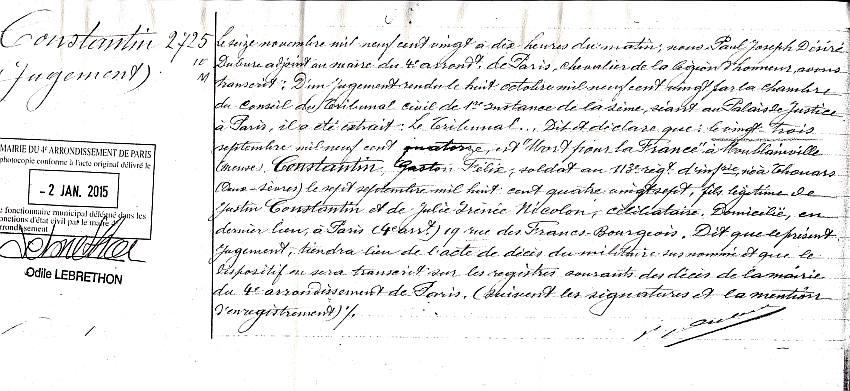 Constantin 2725
10
M
(Jugement)
MAIRIE DU 4e ARRONDISSEMENT DE PARIS
photocopie conforme à l'acte original délivré le
- 2 JAN. 2015
le fonctionnaire municipal délégué dans les
fonctions d'état civil par le maire du
arrondissement
Odile LEBRETHON
Le seize novembre mil neuf cent vingt à dix heures du matin, nous, Paul Joseph Désiré
adjoint au maire du 4e arrondt. de Paris, chevalier de la Légion d'honneur, avons
transcrit: D'un jugement rendu le huit octobre mil neuf cent vingt par la chambre
du Conseil du Tribunal civil de 1ère Instance de la Seine, séant au Palais de Justice
à Paris, il a été extrait: Le Tribunal... Dit et déclare que: le vingt trois
septembre mil neuf cent quatorze, est "Mort pour la France" à Montblainville
(Meuse), Constantin, Gaston Félix, soldat au 113e régt. d'infrie, né à Thouars
(Deux-Sèvres) le sept septembre mil huit cent quatre vingt sept, fils légitime de
Justin Constantin et de Julie Irénée Nicolon, célibataire. Domicilié, en
dernier lieu, à Paris (4e arrt.) 19 rue des Francs-Bourgeois. Dit que le présent
jugement, tiendra lieu de l'acte de décès du militaire susnommé et que le
dispositif en sera transcrit sur les registres courants des décès de la mairie
du 4e arrondissement de Paris. (suivent les signatures et la mention
d'enregistrement)/.